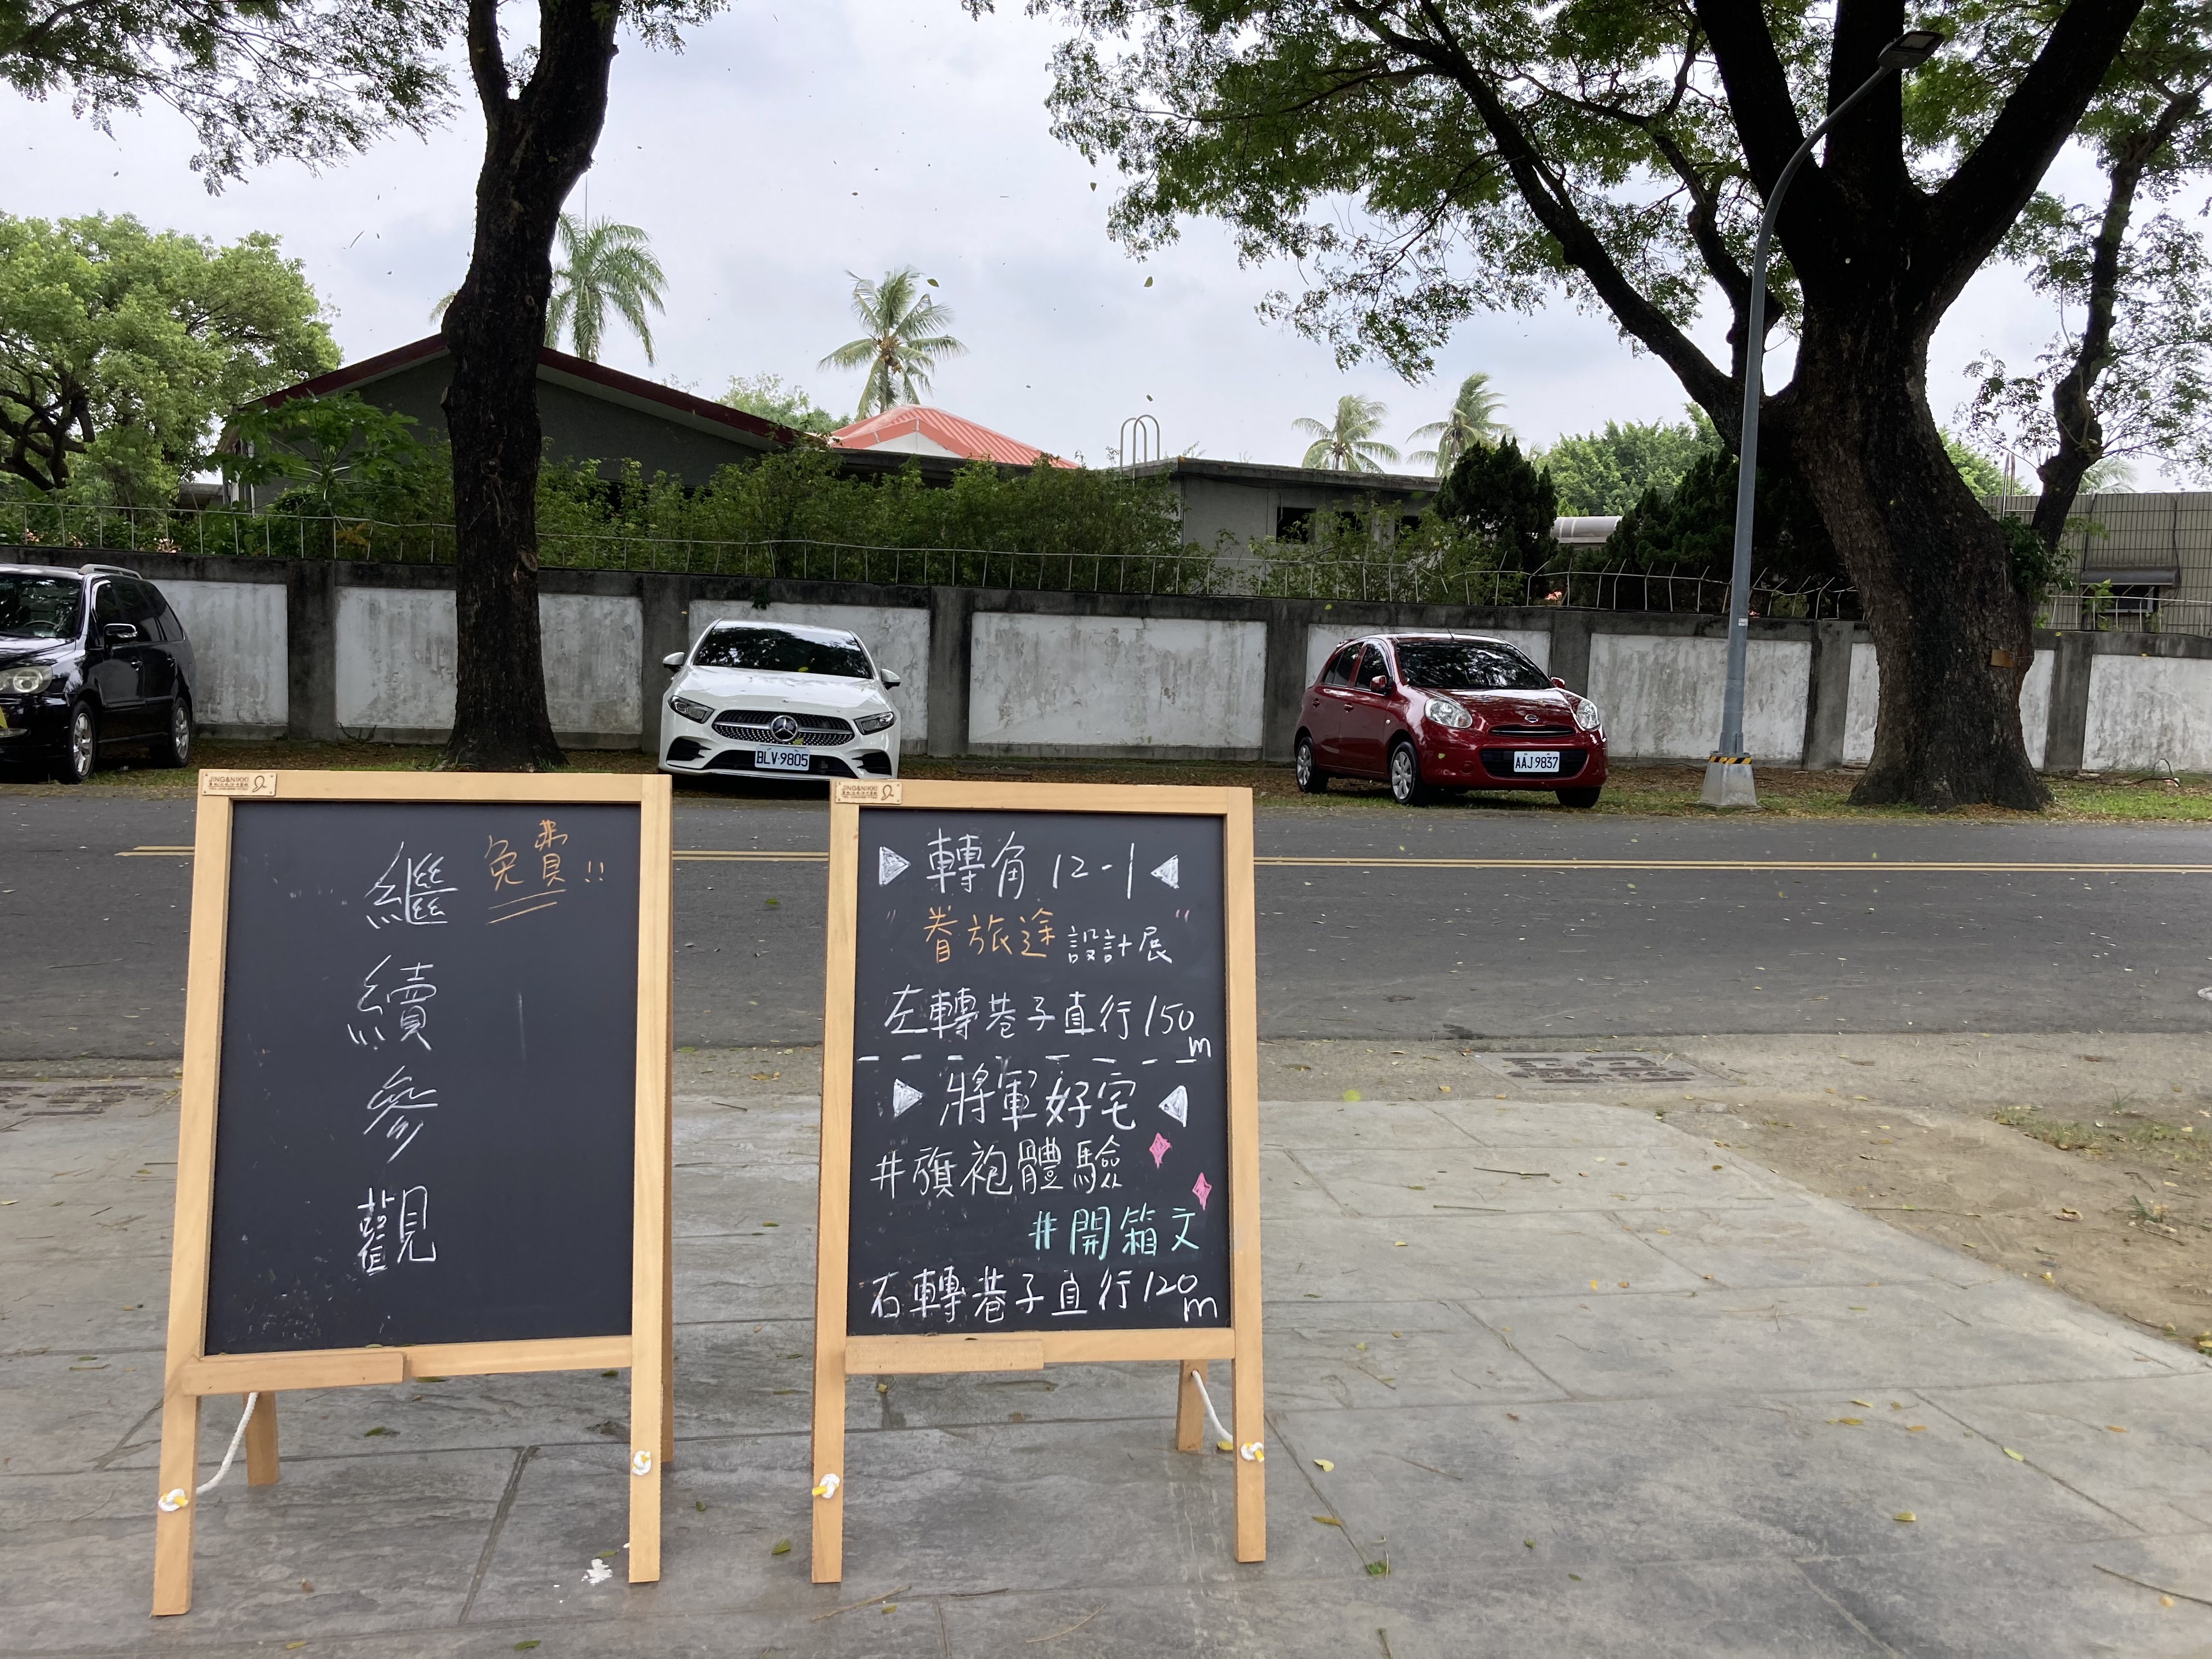 免費!!
繼續參觀
JING&NIKKI
JING&NIKKI
轉角12-1
"眷旅途設計展"
左轉巷子直行150m
將軍好宅
#旗袍體驗
#開箱文
右轉巷子直行120m
BLV-9805
AAJ9837